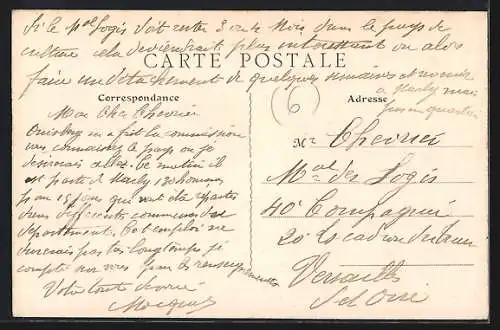 Si le Mal Logis doit rester 3 ou 4 Mois dans le pays de
culture cela deviendrait plus intéressant ou alors
faire un détachement de quelques semaines et revenir
à Marly mais
pas en quartier
CARTE POSTALE
Correspondance
Adresse
(6)
Mon Cher Chevrier
m'a fait la commission
vous connaissez le pays ou je
désirerais aller. Ce matin il
est parti de Marly 120 hommes
pour 15 jours qui vont être répartis
dans différentes communes du
département. Cet emploi ne
durerait pas très longtemps je
compte sur vous pour les renseignements
Votre tout dévoué
Mr Chevrier
Mal des Logis
40e Compagnie
20e Escadron du train
Versailles
S et Oise